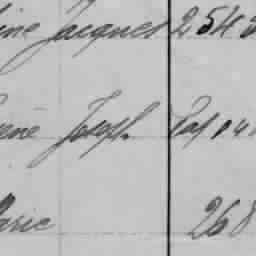 ine Jacques 254
ene Joseph
arie 268